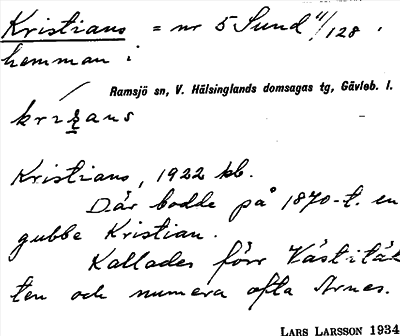 Kristians = nr 5 Sund 11/128.
hemman i
Ramsjö sn, V. Hälsinglands domsagas tg, Gävleb. l.
Kristians, 1922 kb.
Där bodde på 1870-t. en
gubbe Kristian.
Kallades förr Västitäk
ten och numera ofta Arnes.
LARS LARSSON 1934